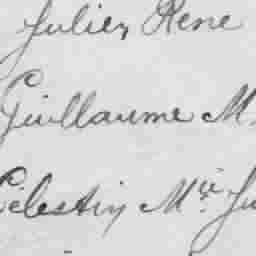 Julien René
Guillaume M
Célestin Mie Ju